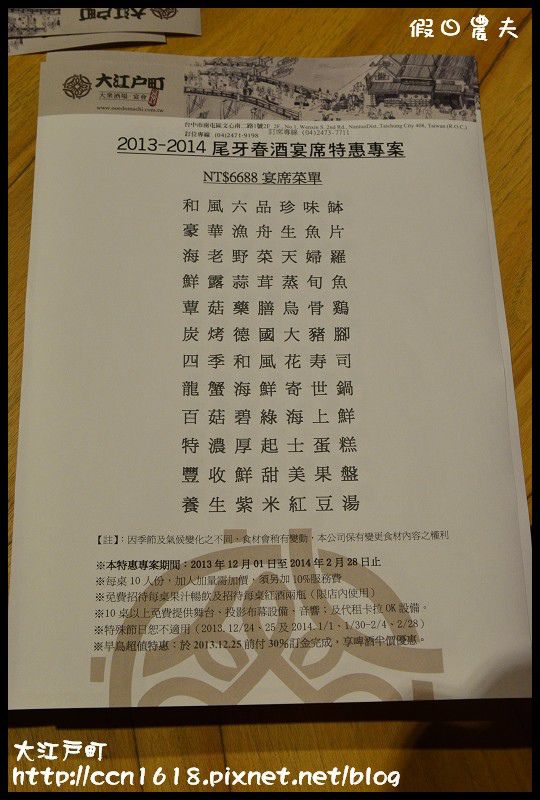 假日農夫
大江戶町
大眾酒場·宴會
www.ooedomachi.com.tw
台中市南屯區文心南二路1號2F 2F., No.1, Wenxin S. 2nd Rd., NantunDist., Taichung City 408, Taiwan (R.O.C.)
訂位專線 (04)2471-9198 訂席專線 (04)2473-7711
2013-2014 尾牙春酒宴席特惠專案
NT$6688 宴席菜單
和風六品珍味缽
豪華漁舟生魚片
海老野菜天婦羅
鮮露蒜茸蒸旬魚
蕈菇藥膳烏骨鷄
炭烤德國大豬腳
四季和風花寿司
龍蟹海鮮寄世鍋
百菇碧綠海上鮮
特濃厚起士蛋糕
豐收鮮甜美果盤
養生紫米紅豆湯
【註】：因季節及氣候變化之不同，食材會稍有變動，本公司保有變更食材內容之權利
※本特惠專案期間：2013 年 12 月 01 日至 2014 年 2 月 28 日止
※每桌 10 人份，加人加量需加價，須另加 10%服務費
※免費招待每桌果汁暢飲及招待每桌紅酒兩瓶（限店內使用）
※10 桌以上免費提供舞台、投影布幕設備、音響；及代租卡拉 OK 設備。
※特殊節日恕不適用（2013.12/24、25 及 2014.1/1、1/30-2/4、2/28）
※早鳥超值特惠：於 2013.12.25 前付 30%訂金完成，享啤酒半價優惠。
大江戶町
http://ccn1618.pixnet.net/blog